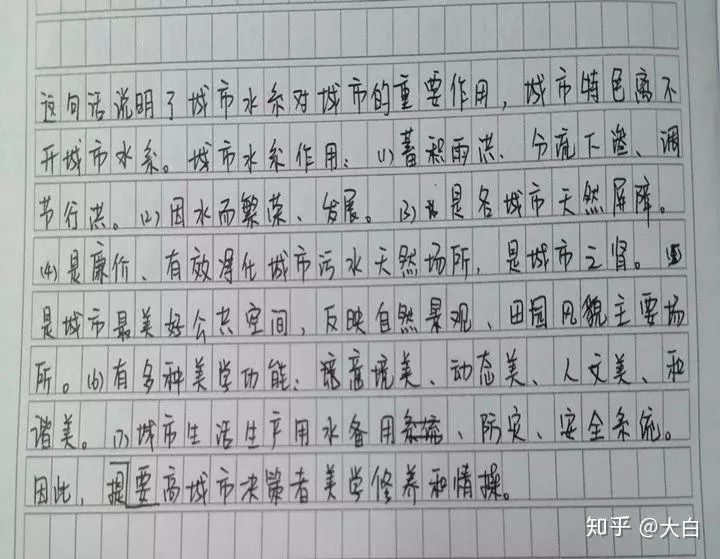 这句话说明了城市水系对城市的重要作用，城市特色离不
开城市水系。城市水系作用：(1)蓄积雨洪、分流下渗、调
节行洪。(2)因水而繁荣、发展。(3)是各城市天然屏障。
(4)是廉价、有效净化城市污水天然场所，是城市之肾。(5)
是城市最美好公共空间，反映自然景观、田园风貌主要场
所。(6)有多种美学功能：意境美、动态美、人文美、和
谐美。(7)城市生活生产用水备用、防灾、安全系统。
因此，要提高城市决策者美学修养和情操。
知乎 @大白